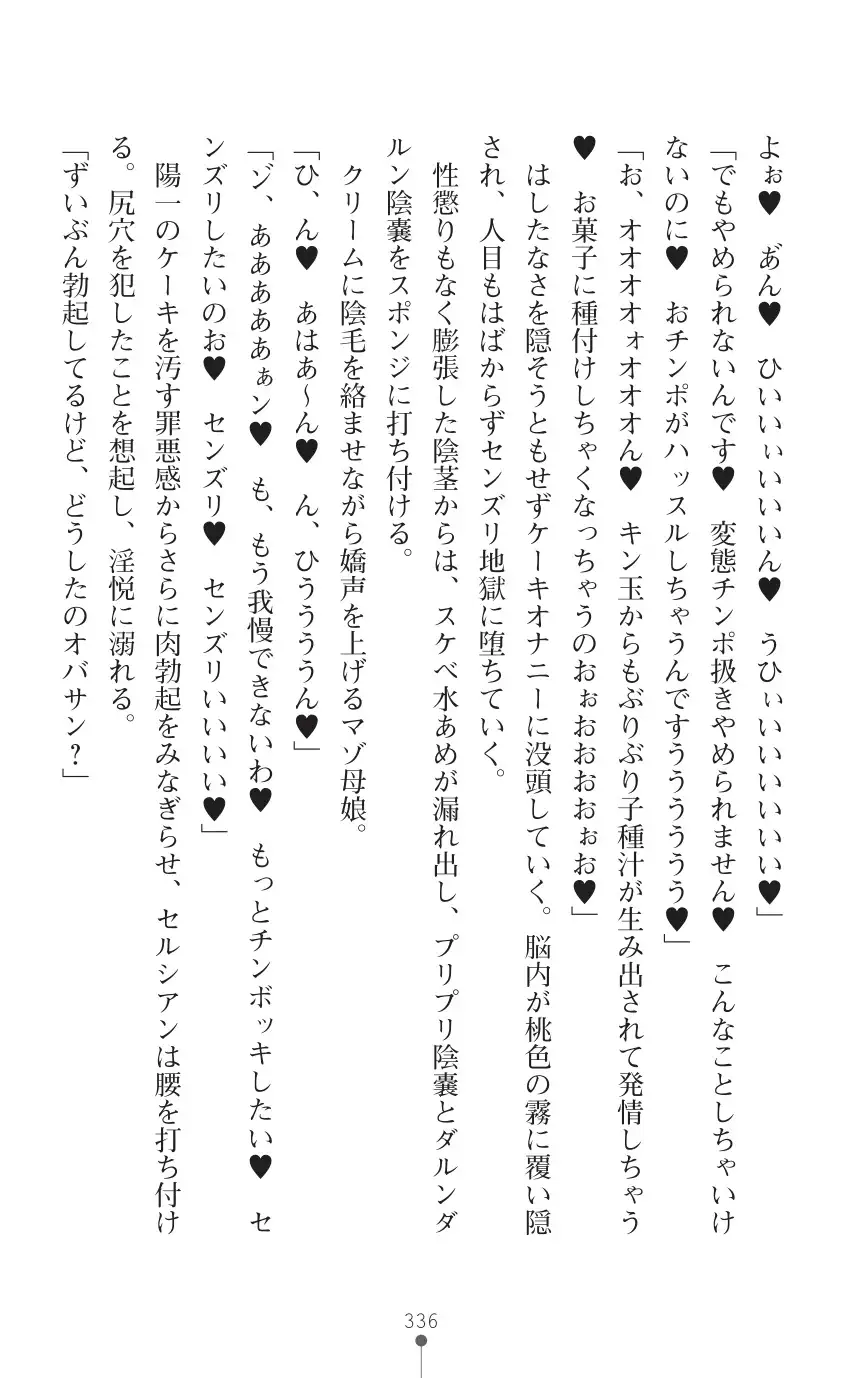 よぉ♥　あ゛ん♥　ひいいぃいいいん♥　うひぃいいいいいい♥」
「でもやめられないんです♥　変態チンポ扱きやめられません♥　こんなことしちゃいけ
ないのに♥　おチンポがハッスルしちゃうんですうううううう♥」
「お、オオオオォオオオん♥　キン玉からもぶりぶり子種汁が生み出されて発情しちゃう
♥　お菓子に種付けしちゃくなっちゃうのおぉおおおおぉお♥」
　はしたなさを隠そうともせずケーキオナニーに没頭していく。脳内が桃色の霧に覆い隠
され、人目もはばからずセンズリ地獄に堕ちていく。
　性懲りもなく膨張した陰茎からは、スケベ水あめが漏れ出し、プリプリ陰嚢とダルンダ
ルン陰嚢をスポンジに打ち付ける。
　クリームに陰毛を絡ませながら嬌声を上げるマゾ母娘。
「ひ、ん♥　あはあ～ん♥　ん、ひうううん♥」
「ゾ、あああああぁン♥　も、もう我慢できないわ♥　もっとチンボッキしたい♥　セ
ンズリしたいのお♥　センズリ♥　センズリいいいい♥」
　陽一のケーキを汚す罪悪感からさらに肉勃起をみなぎらせ、セルシアンは腰を打ち付け
る。尻穴を犯したことを想起し、淫悦に溺れる。
「ずいぶん勃起してるけど、どうしたのオバサン？」
336